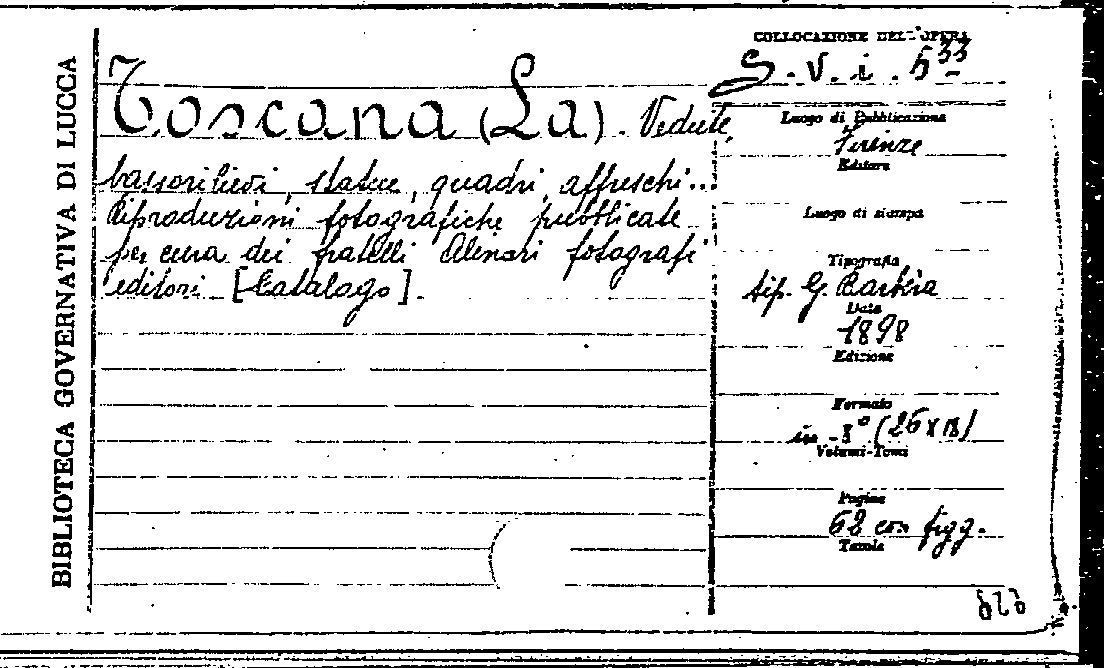 BIBLIOTECA GOVERNATIVA DI LUCCA
Toscana (La). Vedute,
bassorilievi, statue, quadri, affreschi...
Riproduzioni fotografiche pubblicate
per cura dei fratelli Alinari fotografi
editori [Catalogo].
COLLOCAZIONE DELL'OPERA
S. V. i. 533
Luogo di Pubblicazione
Firenze
Editore
Luogo di stampa
Tipografia
tip. G. Barbèra
Data
1898
Edizione
Formato
in-8° (26x18)
Volumi-Tomi
Pagine
62 con figg.
Tavole